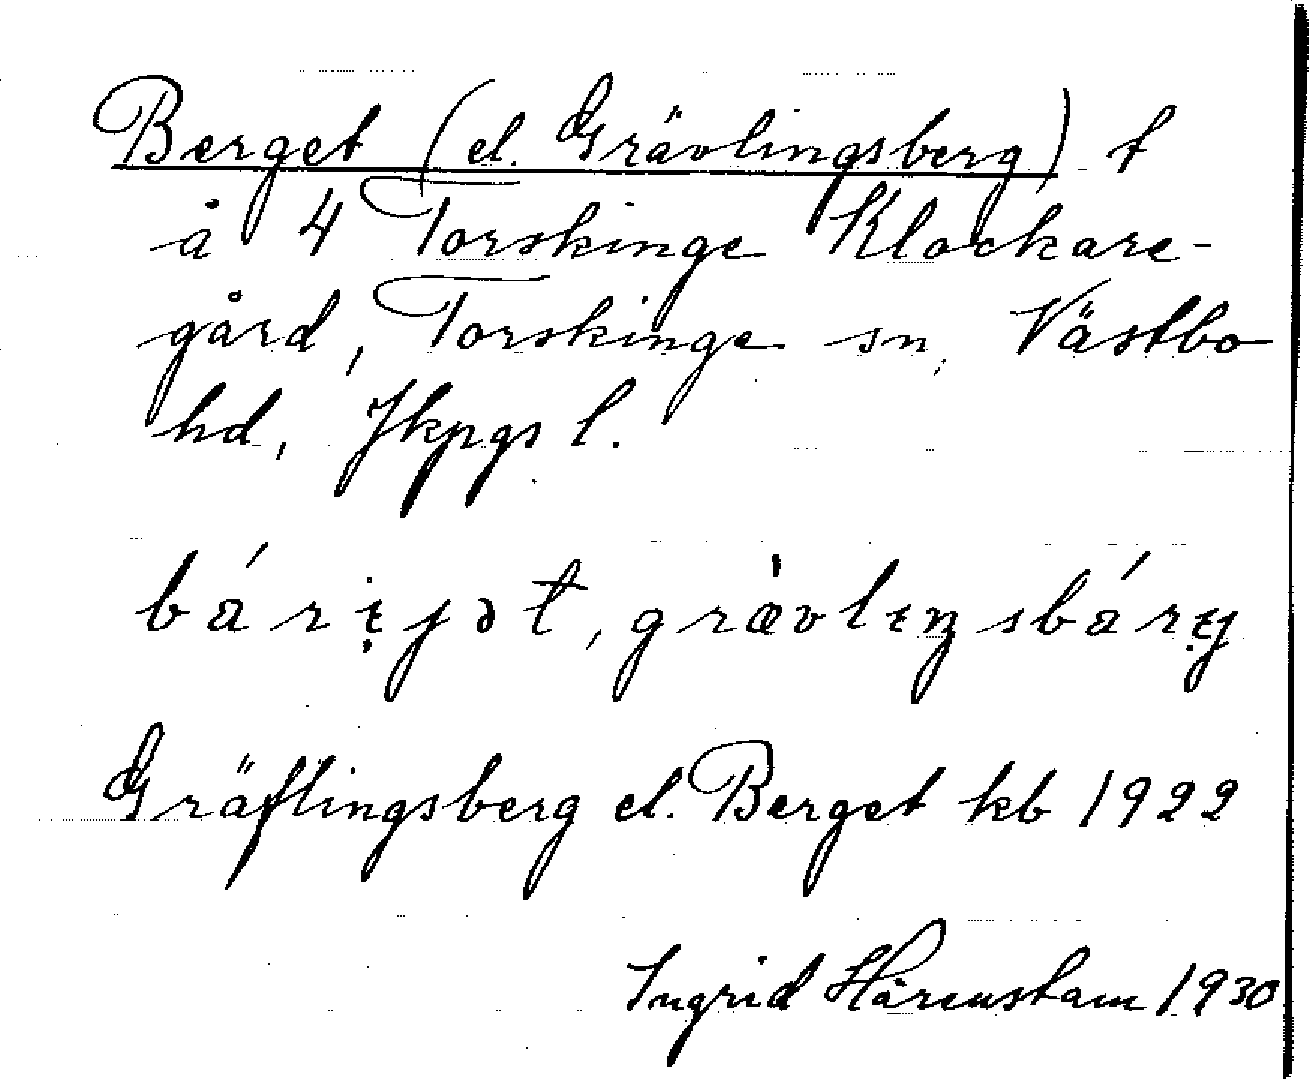 Berget (el. Grävlingsberg) t
å 4 Torskinge Klockare-
gård, Torskinge sn, Västbo
hd, Jkpgs l.
Gräflingsberg el. Berget kb 1922
Ingrid Härenstam 1930